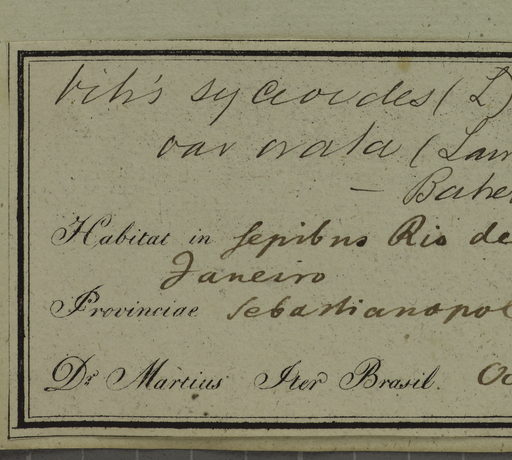 Vitis sycioides (L)
var ovata (Lam
— Baker
Habitat in sepibus Rio de
Janeiro
Provinciae Sebastianopol
Dr Martius Iter Brasil. Oc